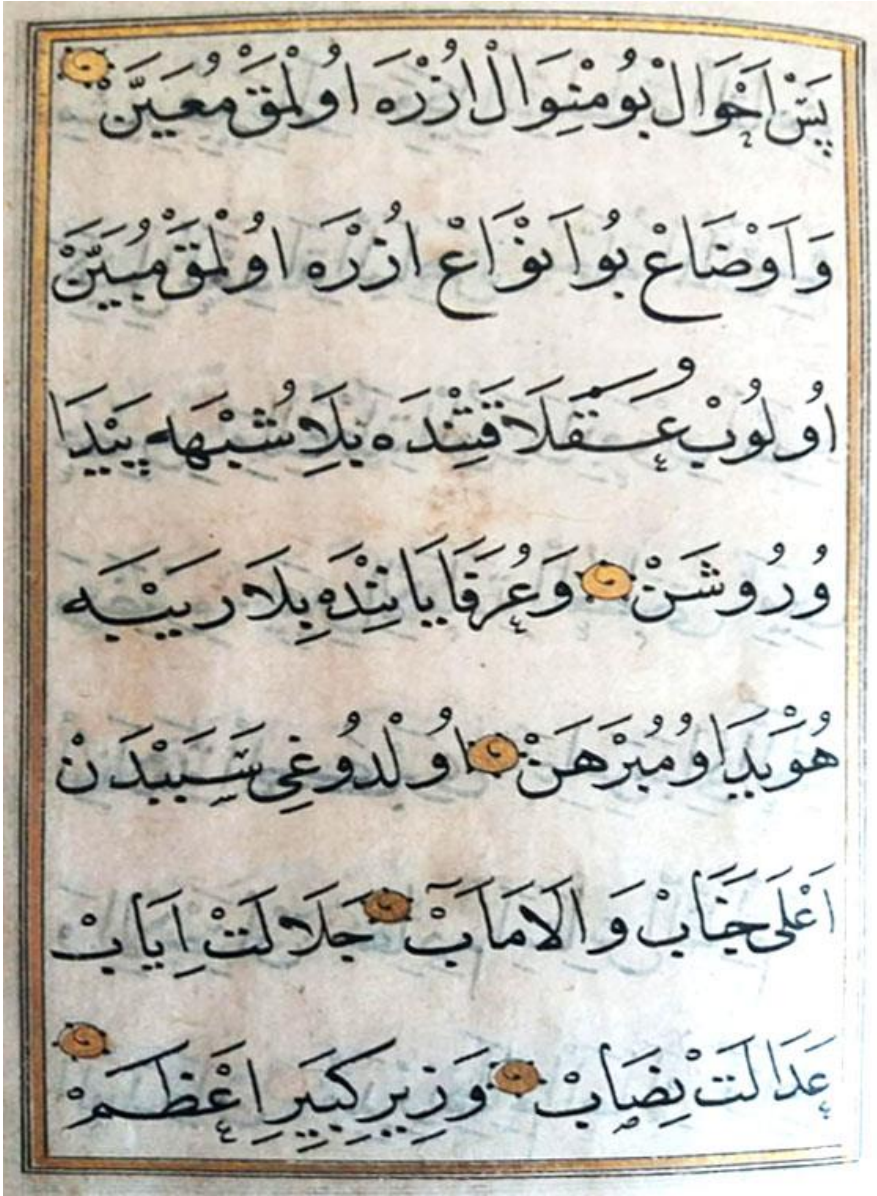 پَسْ اَحْوَالْ بُو مِنْوَالْ اُزْرَه اوُلْمَقْ مُعَيَّنْ
وَاَوْضَاعْ بُو اَنْوَاعْ اُزْرَه اوُلْمَقْ مُبَيَّنْ
اوُلوُبْ عُقَلَا قَتِنْدَه بِلَا شُبْهَه پَيْدَا
وُ رُوشَنْ وَعُرَفَا يَانِنْدَه بِلَا رَيْبَه
هُوَيْدَا وُ مُبَرْهَنْ اوُلْدوُغِى سَبَبْدَنْ
اَعْلَى جَنَابْ وَالَا مَاَبْ جَلَالَتْ اِيَابْ
عَدَالَتْ نِصَابْ وَزِيرِ كَبِيرِ اَعْظَمْ